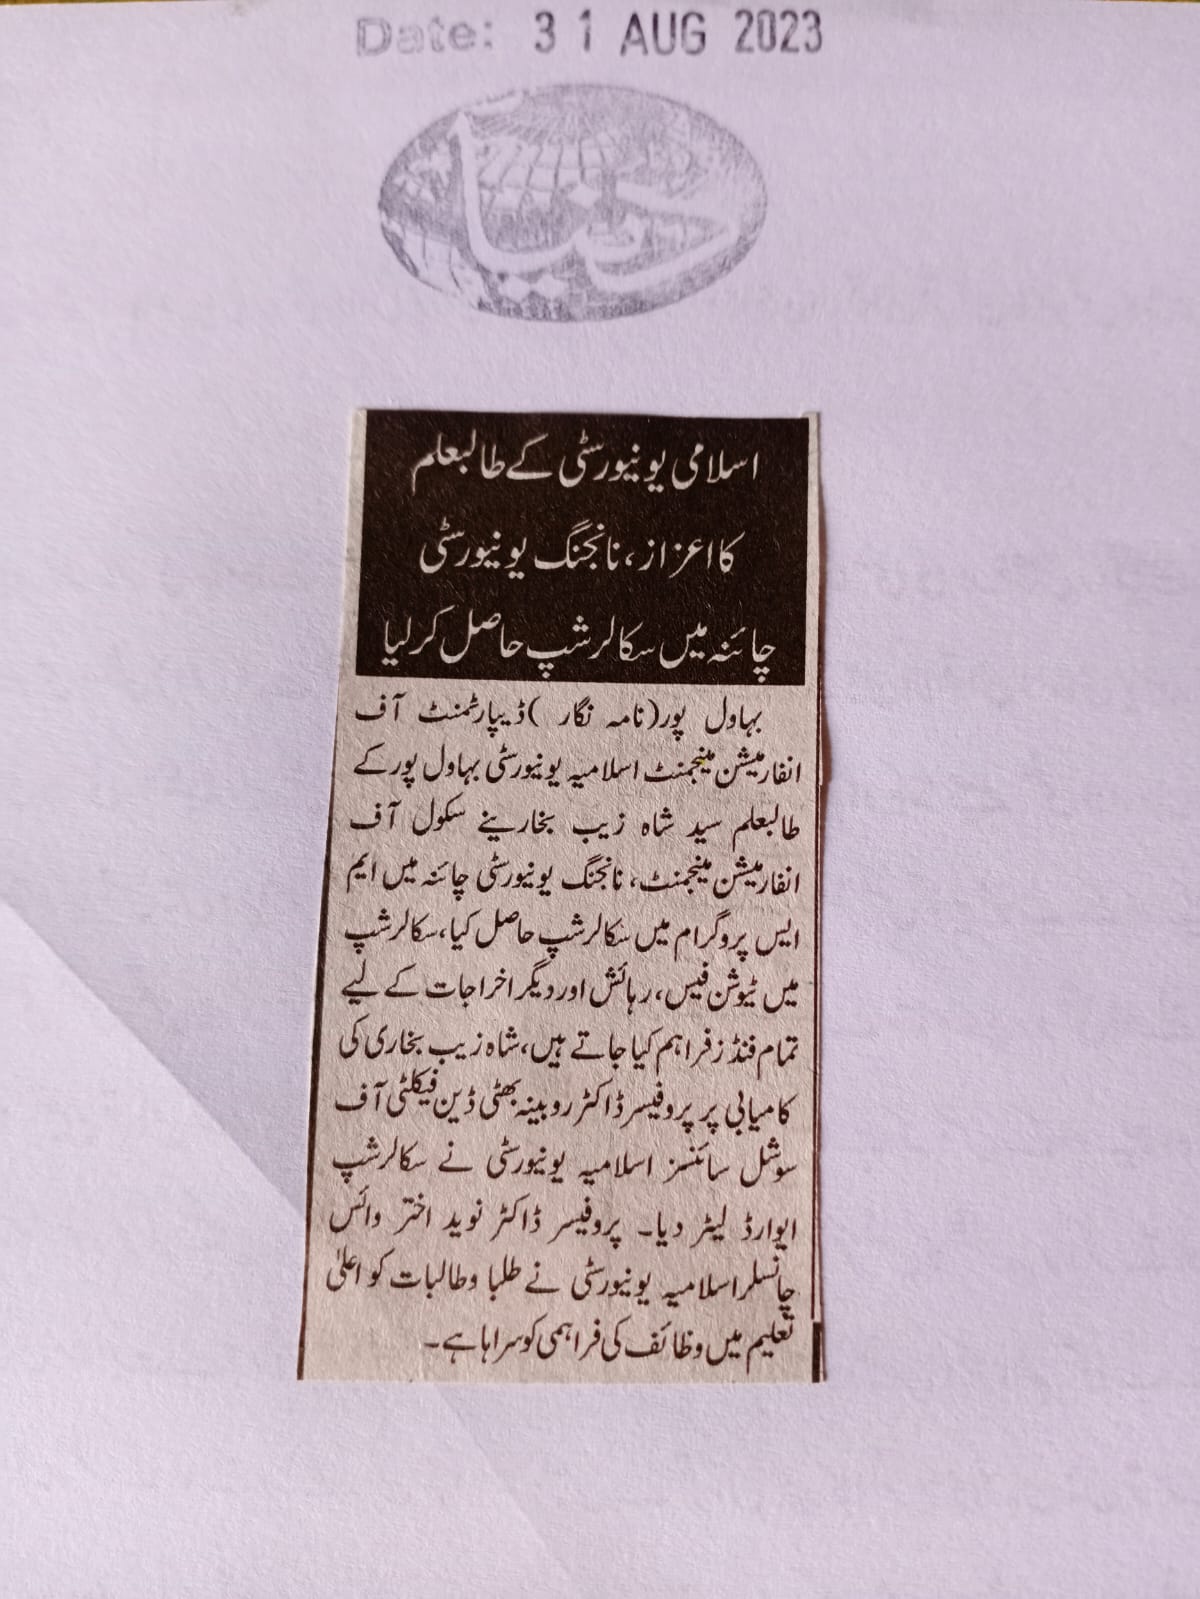 Date: 31 AUG 2023
دنیا
اسلامی یونیورسٹی کے طالبعلم
کا اعزاز، نانجنگ یونیورسٹی
چائنہ میں سکالرشپ حاصل کر لیا
بہاول پور(نامہ نگار )ڈیپارٹمنٹ آف
انفارمیشن مینجمنٹ اسلامیہ یونیورسٹی بہاول پور کے
طالبعلم سید شاہ زیب بخارینے سکول آف
انفارمیشن مینجمنٹ، نانجنگ یونیورسٹی چائنہ میں ایم
ایس پروگرام میں سکالرشپ حاصل کیا، سکالرشپ
میں ٹیوشن فیس، رہائش اور دیگر اخراجات کے لیے
تمام فنڈز فراہم کیا جاتے ہیں، شاہ زیب بخاری کی
کامیابی پر پروفیسر ڈاکٹر روبینہ بھٹی ڈین فیکلٹی آف
سوشل سائنسز اسلامیہ یونیورسٹی نے سکالرشپ
ایوارڈ لیٹر دیا۔ پروفیسر ڈاکٹر نوید اختر وائس
چانسلر اسلامیہ یونیورسٹی نے طلبا و طالبات کو اعلیٰ
تعلیم میں وظائف کی فراہمی کو سراہا ہے۔